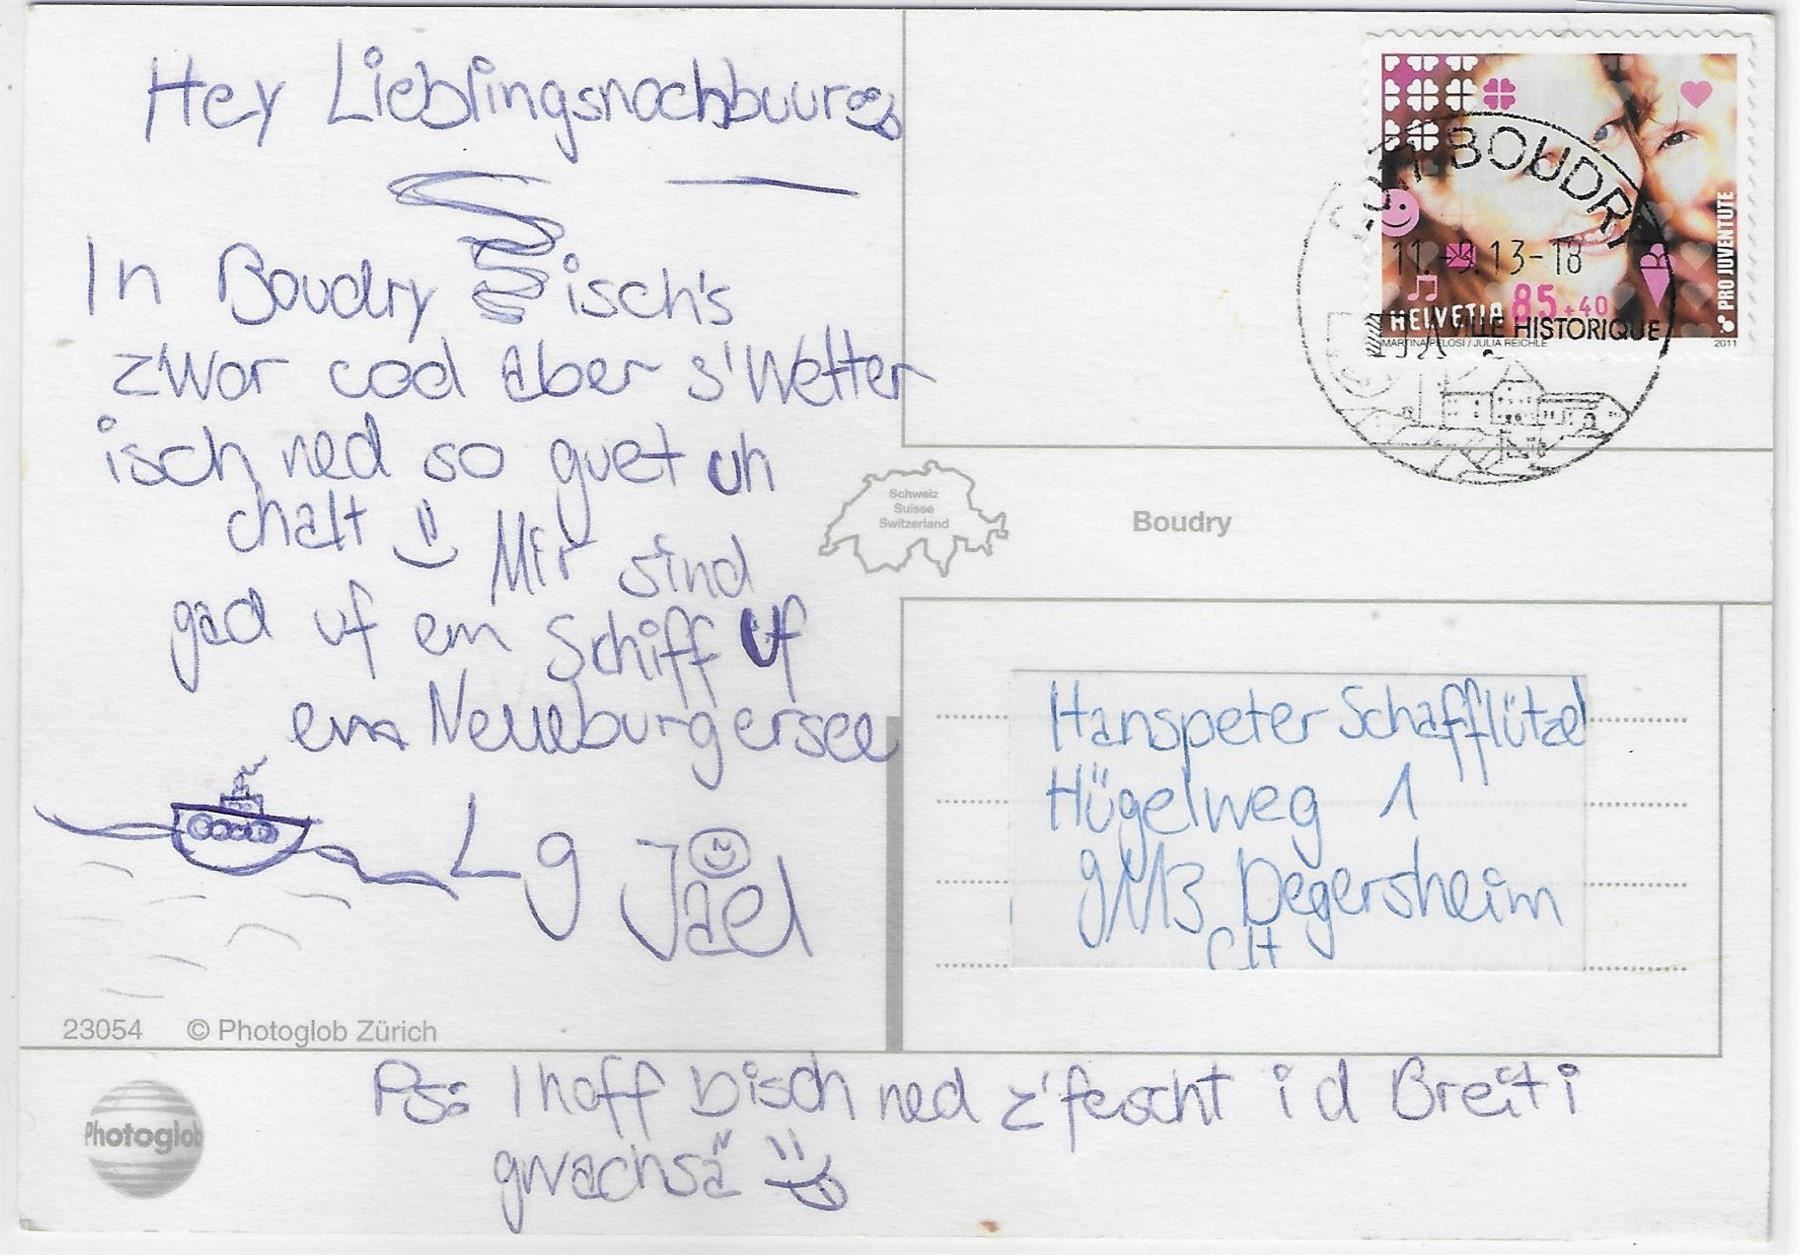 Hey Lieblingsnochbuur
In Boudry isch's
zwor cool aber s'Wetter
isch ned so guet uh
chalt
Mir sind
gad uf em Schiff uf
em Neueburgersee
Lg Jaël
23054 © Photoglob Zürich
Photoglob
Ps: I hoff bisch ned z'fescht i d Breiti
gwachsä
BOUDRY
11.-9.13-18
VILLE HISTORIQUE
HELVETIA 85+40
PRO JUVENTUTE
MARTINA PELOSI / JULIA REICHLE 2011
Schweiz
Suisse
Switzerland
Boudry
Hanspeter Schafflützel
Hügelweg 1
9113 Degersheim
CH